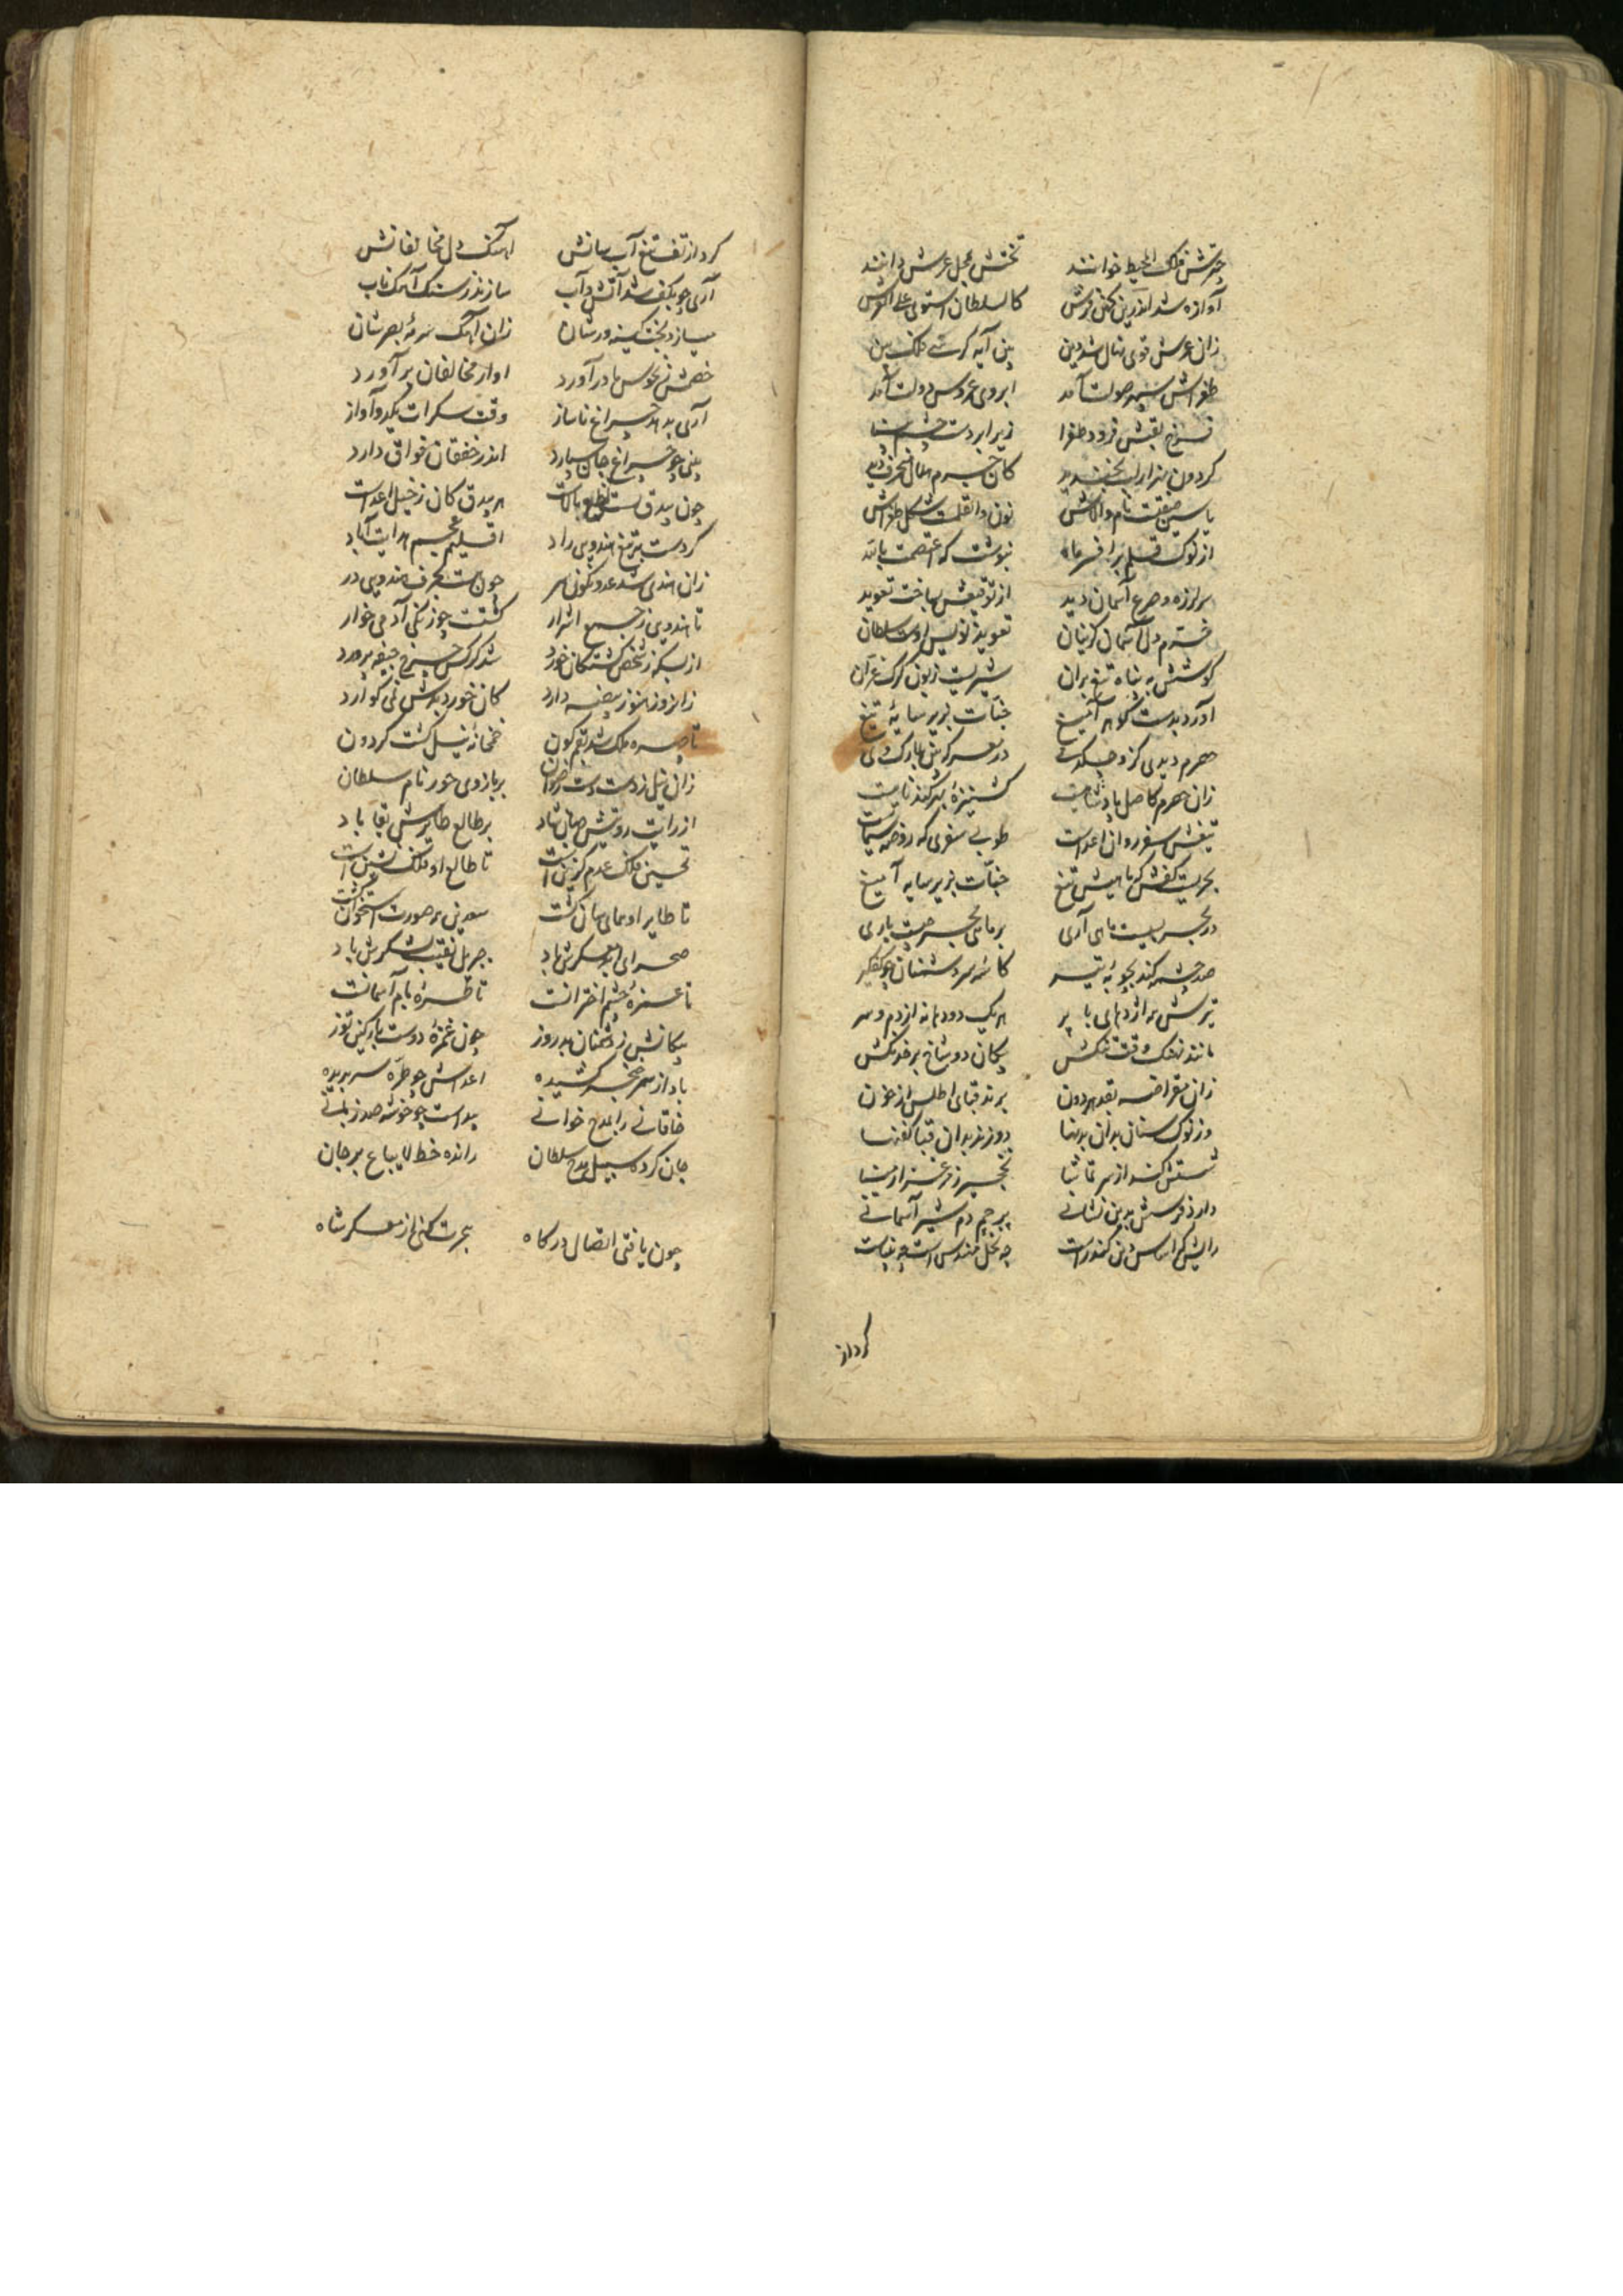 چترش فلک المحیط خوانند تختش محل عرش دانند
آوازه شد اندرین کهن فرش کالسلطان استوی علی العرش
زان عرش قوی بنای شد دین بین آیه کرسی ملک بین
طغراش سپهر صولت آمد ابروی عروس دولت آمد
زیر
کردون هزار دیده کان جرم هلال
یاسین صفت نام والاش نون والقلمست شکل طغراش
از نوک قلم برافسر ماه بنوشت که اعتصمت بالله
برلرزه و صرع آسمان دید از توقیعش ساخت تعوید
خرم دل آسمان تعویذ نویس اوست سلطان
کوشش به پناه تیغ بران شیریست زبون کرک غران
آرد بدست کوهر آمیغ جنات بزیر سایهٔ تیغ
جوهرم دیدی در معرکه بین
زان جوهرم کاصل پادشاهیست
تیغش سفر روان اعداست طوبی سفری که روضه سیماست
بحریست کفش که ماهیش تیغ جنات بزیر سایه آمیغ
در بحر بسیست ماهی آری بر ماهی بحر نیست باری
صد چشمه کند بچوبهٔ تیر کاسه سر دشمنان چو کفکیر
تیرش نه اژدهای با پر هریک دو دهانه از دم و سر
مانند نهنک وقت جنکش پیکان دو شاخ بر خدنکش
زان مقراضه بقد هر دون برند قبای اطلس از خون
وز نوک سنان بدان بدنها دوزند بدان قبا کفنها
شستش کند از سر تماشا نخجیر ز مرغزار مینا
دارد فرسش بدین نشانی پرچم دم شیر آسمانی
رایش که اساس دین کند راست چه نخل مهندس است چه بناست
کرد از
کرد از تف تیغ آب سانش آهنک دل مخالفانش
آری چو بکف شد آتش و آب سازند ز سنک آهک ناب
میسازد بخت کینه ورشان زان آهک سرمهٔ بصرشان
خصمش ز نحوس سر درآورد آواز مخالفان برآورد
آری بدهد چراغ ناساز وقت سکرات یکدو آواز
بینی چو چراغ جان سپارد اندر خفقان فواق دارد
چون بیدق هر بیدق کان ز خیل اعداست
کردست بتیغ هندوی راد اقلیم عجم هدایت آباد
زان هندی شد عدو نکونسر چون هست بحرف هندوی در
تا هندوی ز جمع اشرار کشتست چو زنکی آدمی خوار
از بسکه ز شخص کشتکان خورد شد کرکس چرخ جیفه پرورد
زانروز هنوز هیضه دارد کان خورد بدوش نمی کوارد
تا چهره ملک شد بقم کون خمخانهٔ نیل کشت کردون
زان نیل زدست دست رضوان بربازوی حور نام سلطان
از رایت رویتش جهان شاد بر طالع طایرش بقا باد
تحسین فلک عدم کزین است تا طالع او فلک نشین است
تا طایر او همای سان کشت نسرین بر صورت استخوان کشت
صحرای ابد معسکرش باد جبریل نقیب لشکرش باد
تا غمزهٔ چشم اخترانست تا طرهٔ بام آسمانست
پیکانش ز دشمنان بد روز چون غمزهٔ دوست باد کین توز
باد از سر خنجر کشیده اعداش چو طره سر بریده
خاقانی را بمدح خوانی بر دست چو خوشه صد زبانی
جان کرده سبیل مدح سلطان رانده خط لایباع بر جان
چون یافتی اتصال درکاه هجرت کنی از معسکر شاه